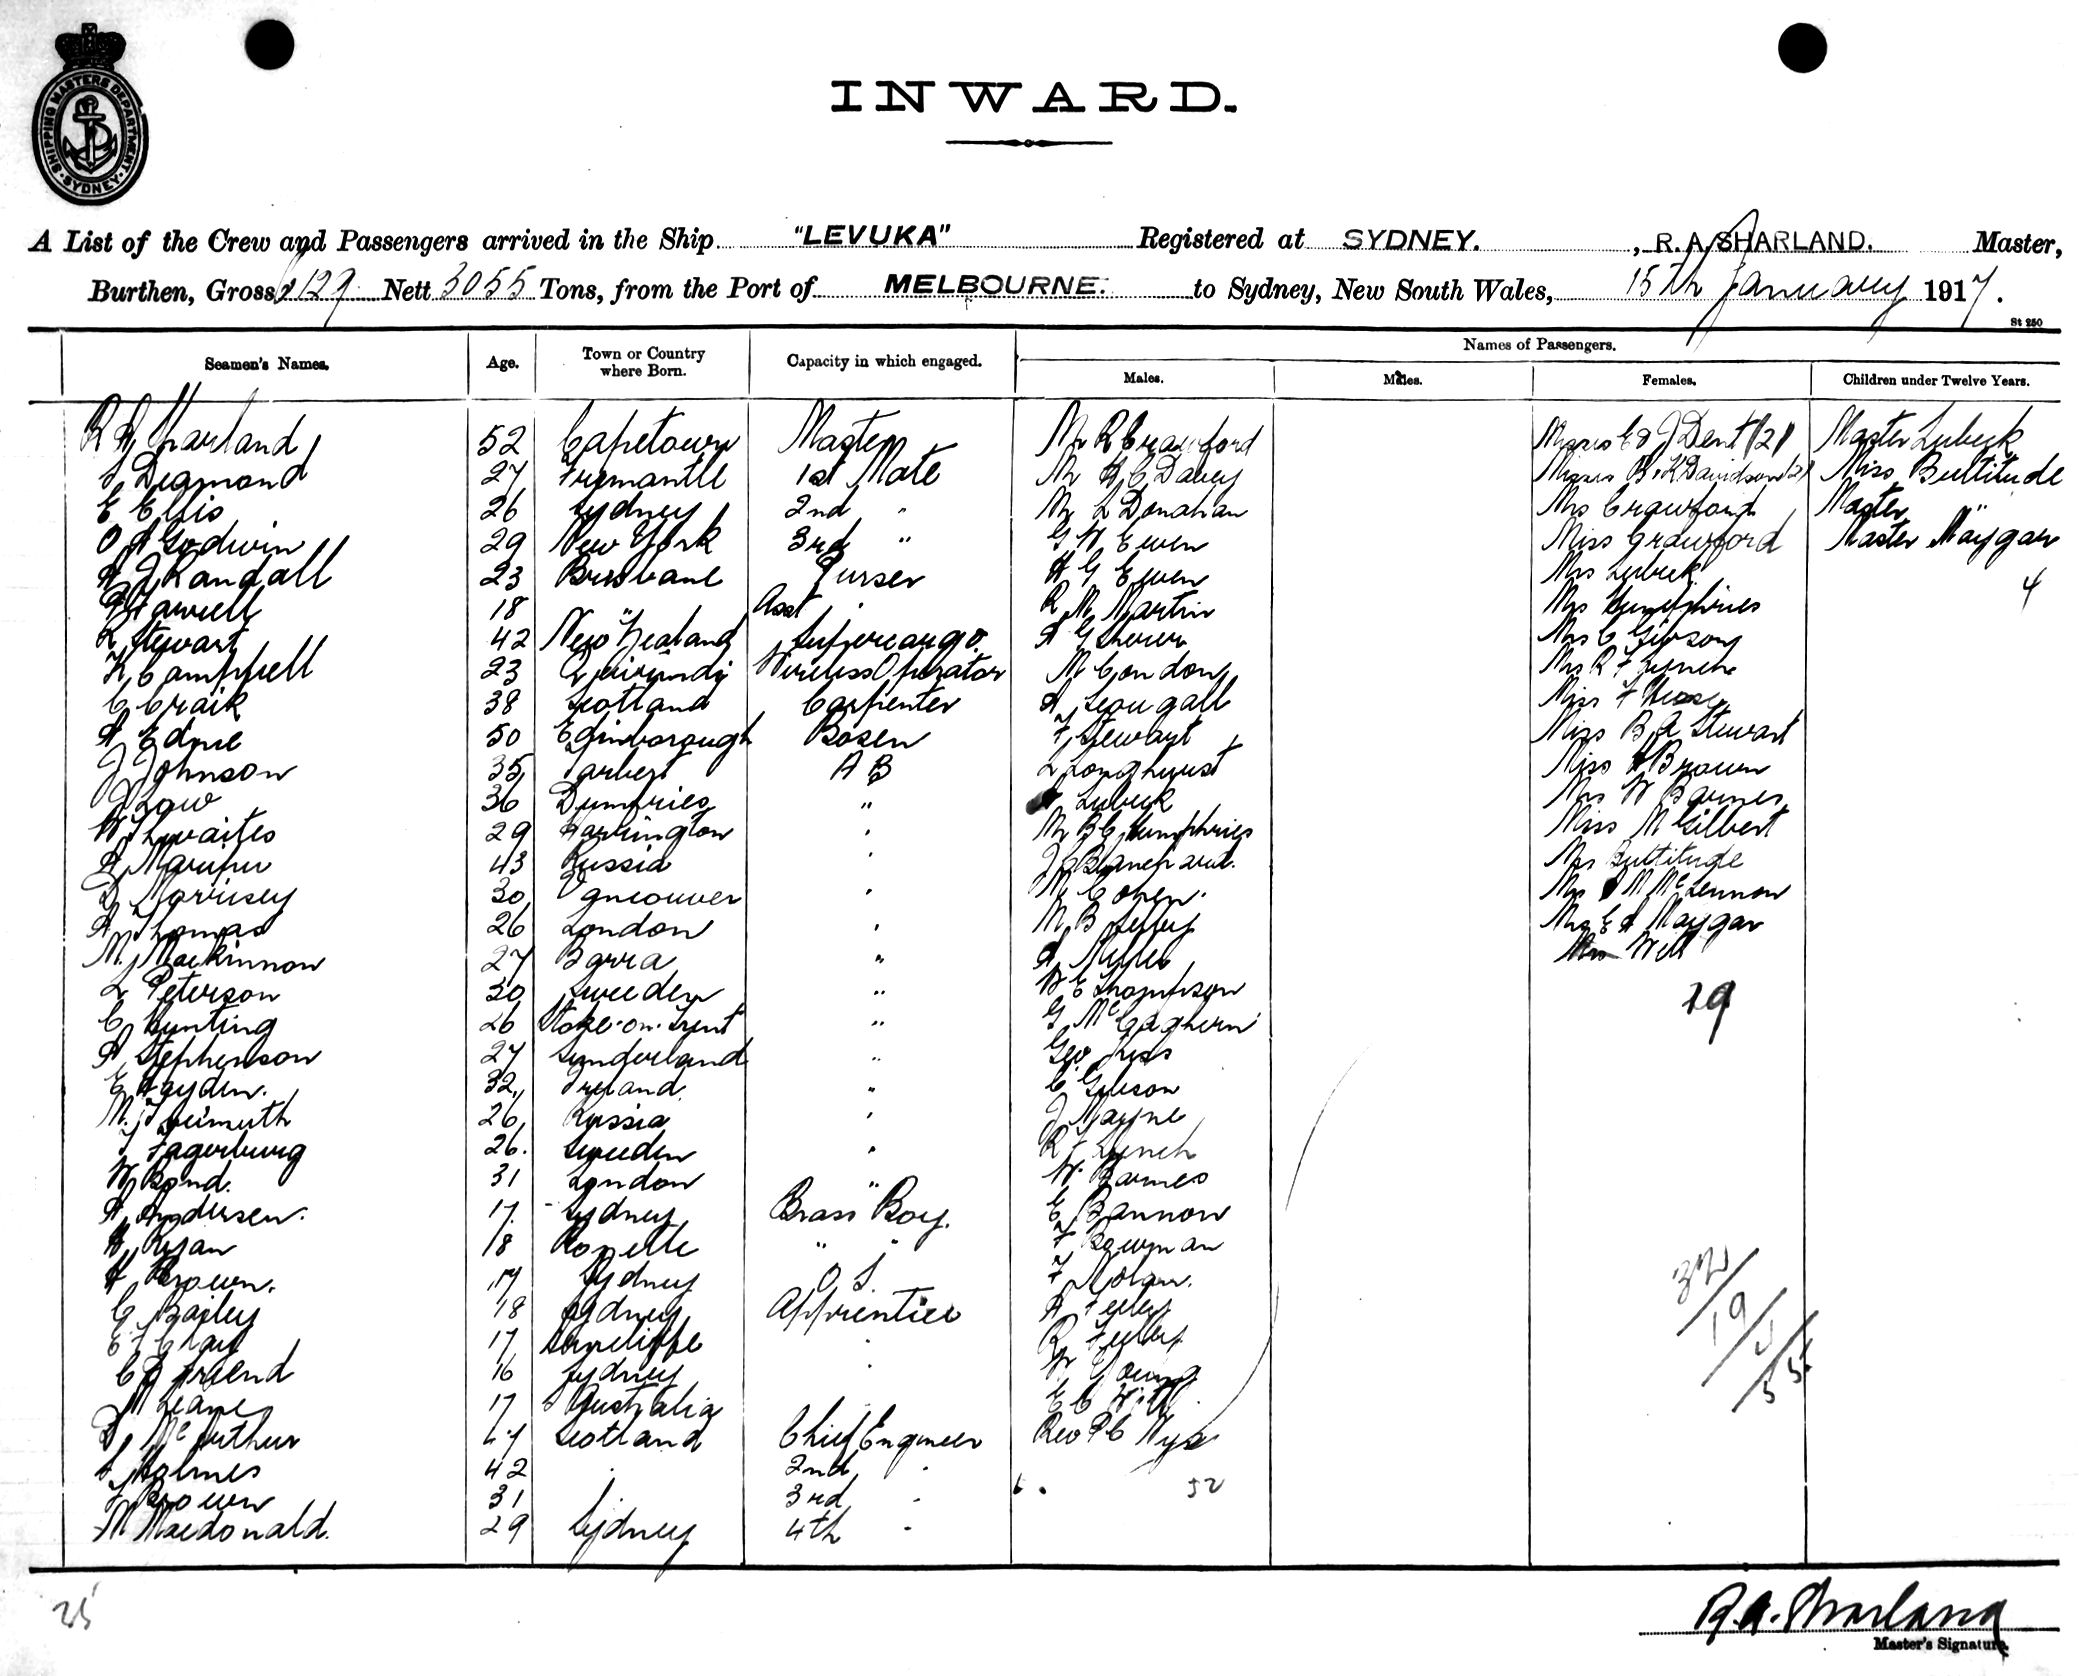 SHIPPING MASTERS DEPARTMENT · SYDNEY ·
INWARD.
A List of the Crew and Passengers arrived in the Ship "LEVUKA" Registered at SYDNEY. , R. A. SHARLAND. Master,
Burthen, Gross 6129 Nett 3055 Tons, from the Port of MELBOURNE. to Sydney, New South Wales, 15th January 1917.
St 250
Seamen's Names. Age. Town or Country where Born. Capacity in which engaged. Names of Passengers.
Males. Males. Females. Children under Twelve Years.
R A Sharland 52 Capetown Master Mr R Crawford Misses E & J Dent (2) Master Lubeck
S Diamond 27 Fremantle 1st Mate Mr A C Davey Misses B & K Davidson (2) Miss Bultitude
E Ellis 26 Sydney 2nd " Mr L Donahan Mrs Crawford Master "
O A Godwin 29 New York 3rd " G W Ewen Miss Crawford Master Maygar
A J Randall 23 Brisbane Purser A G Ewen Mrs Lubeck 4
Farrell 18 " Asst " R M Martin Mrs Humphries
R Stewart 42 New Zealand Supercargo. A G Mrs C Gibson
K Campbell 23 Quirindi Wireless Operator M Condon Mrs R F Lynch
C Craik 38 Scotland Carpenter A Scougall Miss F
A Edne 50 Edinborough Bosen F Stewart Miss B A Stewart
J Johnson 35 Tarbert A B L Longhurst Miss A Brown
J Law 36 Dumfries " Lubeck Mrs W Barnes
W Thwaites 29 Harrington " Mr B G Humphries Miss M Gilbert
A 43 Russia " J Blanchard. Mrs Bultitude
D Morrisey 30 Vancouver " M Cohen. Mrs M McLennon
A Thomas 26 London " M B Selby Mrs E A Maygar
M. Mackinnon 27 Barra " A Miller Mrs Witt
L Peterson 30 Sweeden " W E Thompson 19
C Hunting 26 Stoke-on-Trent " G McEaghern
A Stephenson 27 Sunderland " Geo. Liss
E Hayden. 32 Ireland " C Gibson
M. 26 Russia " J Mayne
J Fagerburg 26. Sweeden " R F Lynch
W Bond. 31 London " W. Barnes
A Andersen. 17. Sydney Brass Boy. E Bannon
A Ryan 18 Rozelle " " F Bowman
A Brown. 17 Sydney O S. F Nolan.
G Bailey 18 Sydney Apprentice A Felby
E F Clay 17 " R Felby
C E Friend 16 Sydney " W Young
M Leane 17 Australia E C Witt
D McArthur 47 Scotland Chief Engineer Rev P C Wyse
S Holmes 42 " 2nd "
F Brown 31 " 3rd " 32
M Macdonald. 29 Sydney 4th "
32/19/4/55
35
R. A. Sharland
Master's Signature.